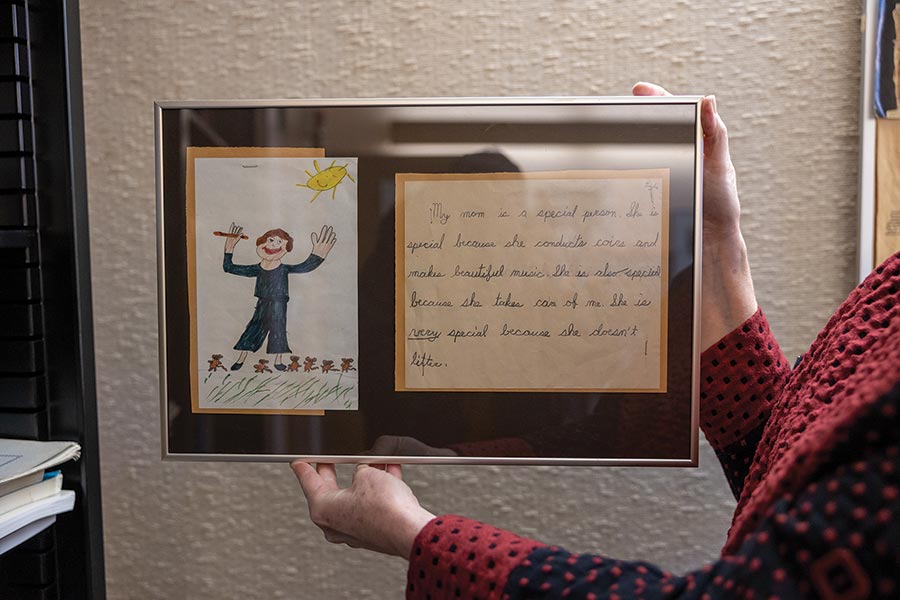 My mom is a special person. She is
special because she conducts coirs and
makes beautiful music. She is also special
because she takes car of me. She is
very special because she doesn't
litter.